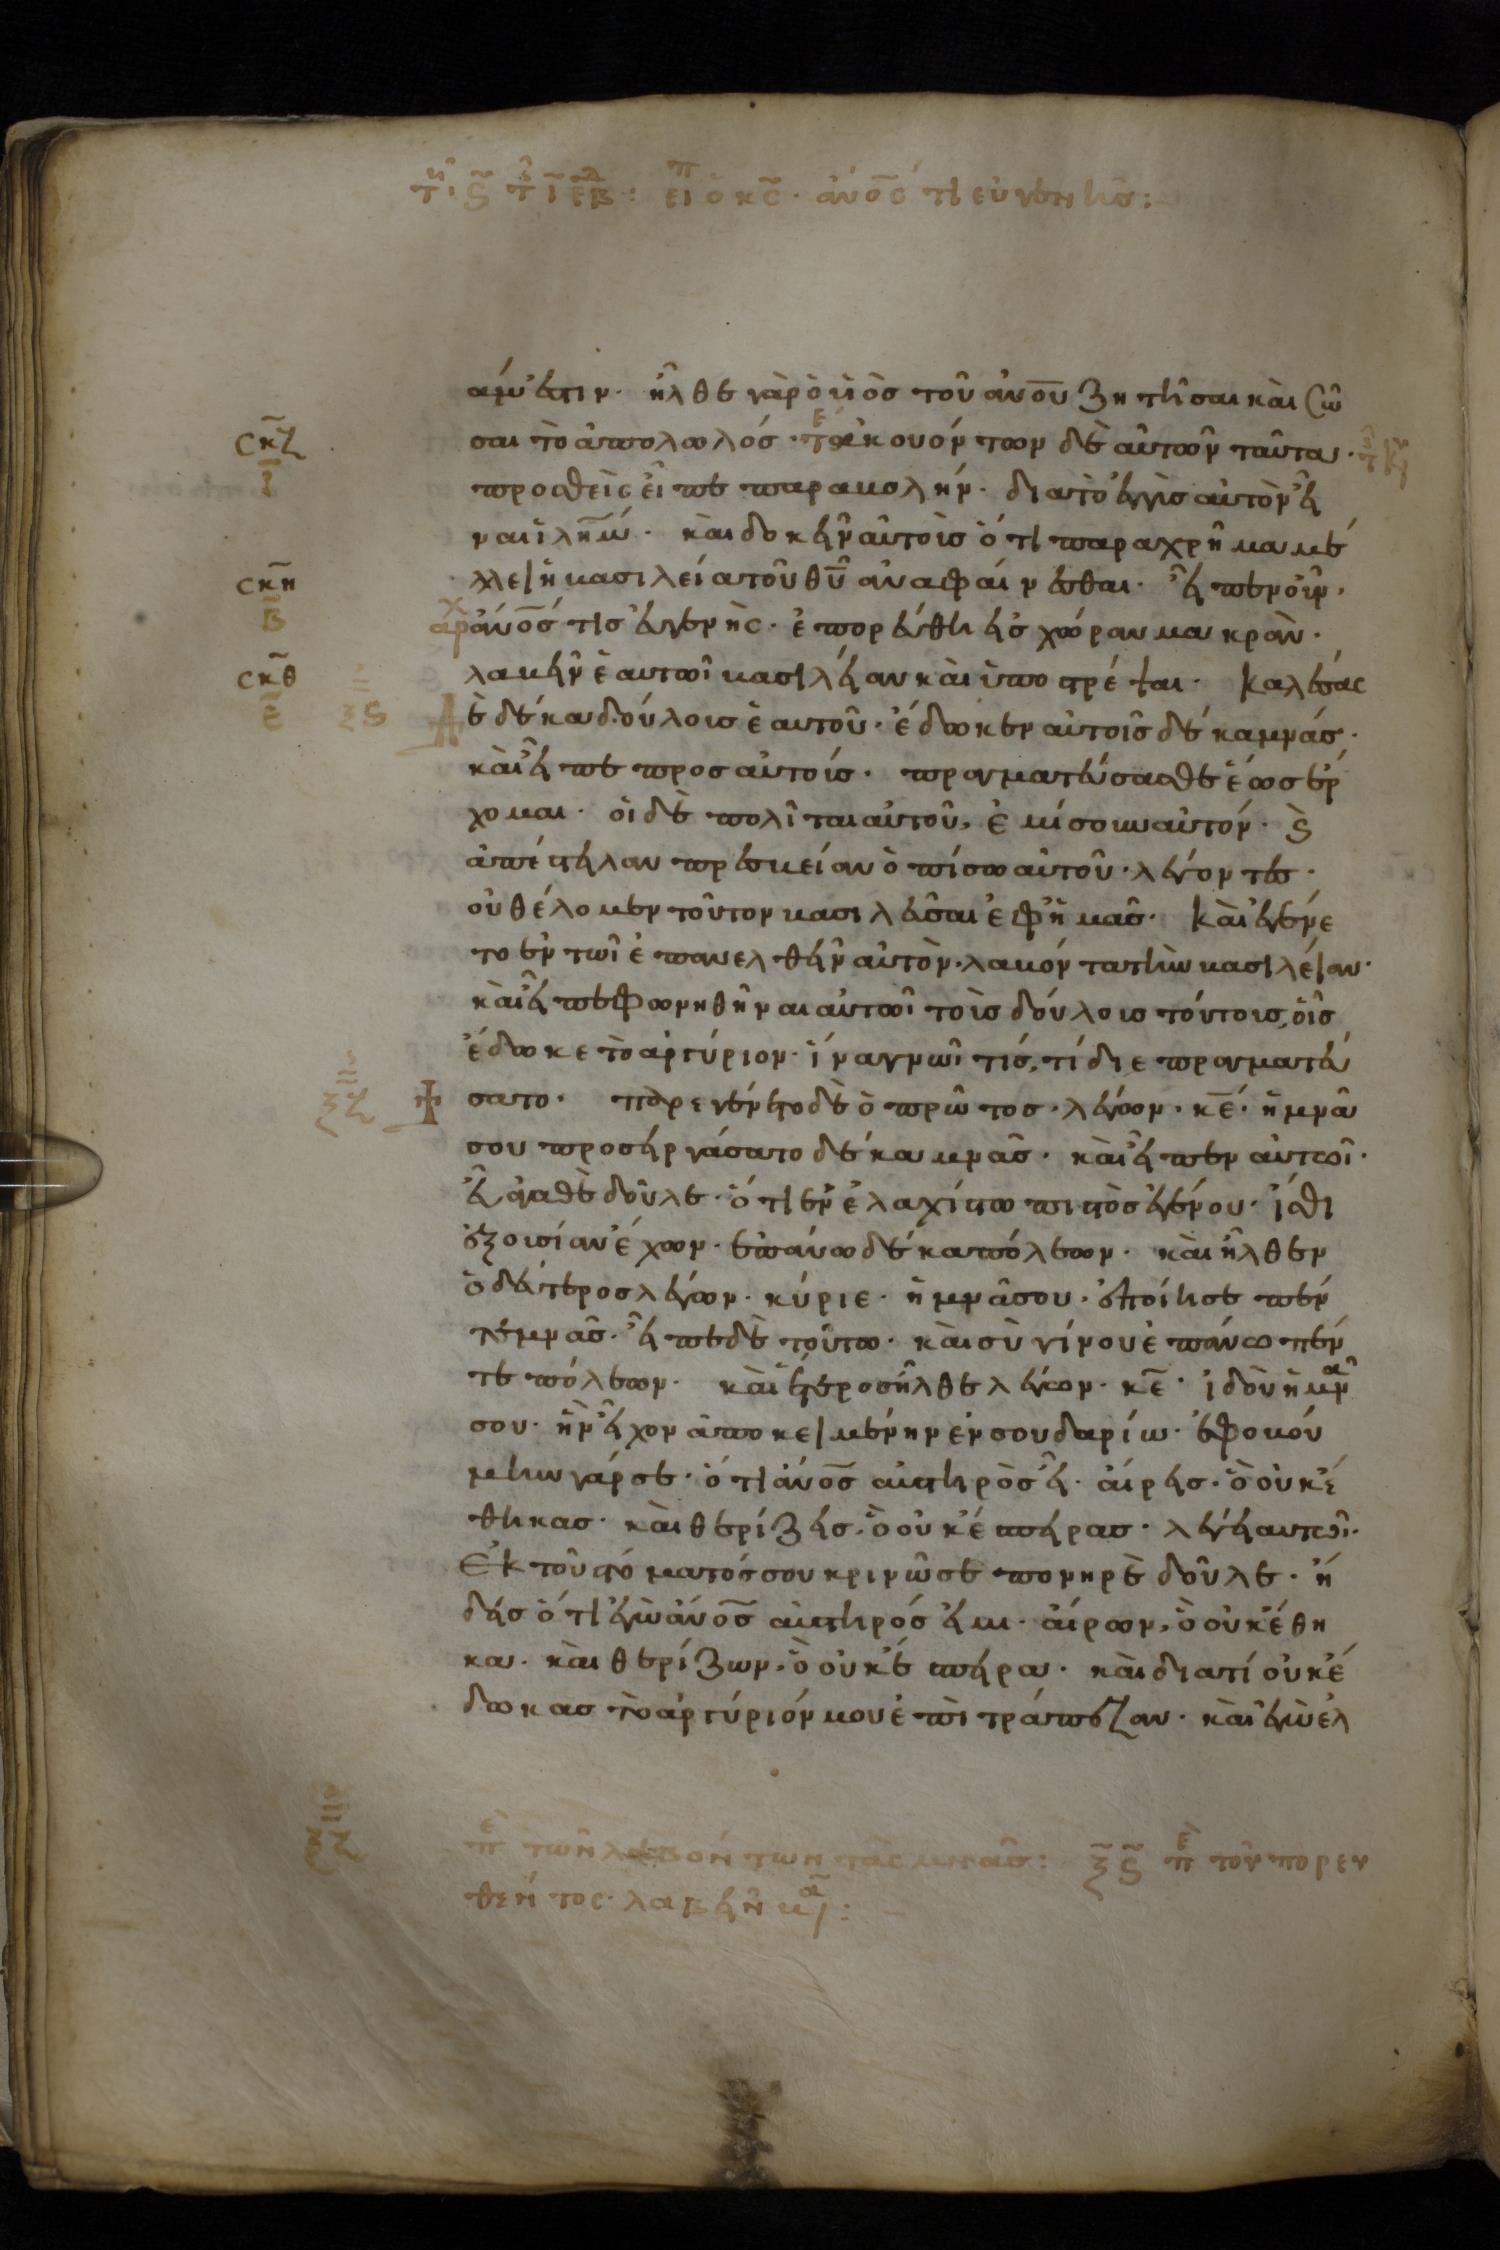 εἶπ ὁ κς· ἀνος τὶ εὐγενὴς:
αμ ἐστιν· ἦλθε γὰρ ὁ υἱὸσ τοῦ ἀνου ζητῆσαι καὶ σῶ
σκζ σαι τὸ ἀπολωλόσ· ἀκουόντων δὲ αὐτῶν ταῦτα·
ι προσθεὶς εἶπε παραβολήν· διατὸ ἐγγὺσ αὐτὸν εἶ
ναι ἰλημ· καὶ δοκεῖν αὐτοὺσ ὅτι παραχρῆμα μέ
σκη λλει ἡ βασιλεία τοῦ θυ ἀναφαίνεσθαι· εἶπεν οὖν·
β ἀνος τισ εὐγενὴς· ἐπορεύθη εἰσ χώραν μακρὰν·
σκθ λαβεῖν ἑαυτῶ βασιλείαν καὶ ὑποστρέψαι· καλέσας
ε ξς δὲ δέκα δούλουσ ἑαυτοῦ· ἔδωκεν αὐτοῖσ δέκα μνάσ·
καὶ εἶπε προσ αὐτούσ· πραγματεύσασθε ἕωσ ἔρ
χομαι· οἱ δὲ πολῖται αὐτοῦ, ἐμίσουν αὐτόν· καὶ
ἀπέστειλαν πρεσβείαν ὀπίσω αὐτοῦ· λέγοντεσ·
οὐ θέλομεν τοῦτον βασιλεῦσαι ἐφ ἡμᾶσ· καὶ ἐγένε
το ἐν τῶι ἐπανελθεῖν αὐτὸν· λαβόντα τὴν βασιλείαν·
καὶ εἶπε φωνηθῆναι αὐτῶι τοὺσ δούλουσ τούτουσ, οἷσ
ἔδωκε τὸ ἀργύριον· ἵνα γνῶι τίσ, τί διεπραγματεύ
ξζ σατο· παρεγένετο δὲ ὁ πρῶτοσ· λέγων· κε· ἡ μνᾶ
σου προσειργάσατο δέκα μνᾶσ· καὶ εἶπεν αὐτῶι·
εὖ ἀγαθὲ δοῦλε· ὅτι ἐν ἐλαχίστω πιστὸσ ἐγένου· ἴσθι
ἐξουσίαν ἔχων· ἐπάνω δέκα πόλεων· καὶ ἦλθεν
ὁ δεύτεροσ λέγων· κύριε· ἡ μνᾶ σου· ἐποίησε πέν
τε μνᾶσ· εἶπε δὲ τούτω· καὶ σὺ γίνου ἐπάνω πέν
τε πόλεων· καὶ ἕτεροσ ἦλθε λέγων· κε· ἰδοὺ ἡ μνᾶ
σου· ἣν εἶχον ἀποκειμένην ἐν σουδαρίω· ἐφοβού
μην γάρ σε· ὅτι ἀνοσ αὐστηρὸσ εἶ· αἴρεισ· ὃ οὐκ ἔ
θηκασ· καὶ θερίζεισ· ὃ οὐκ ἔσπειρασ· λέγει αὐτῶι·
ἐκ τοῦ στόματόσ σου κρινῶ σε πονηρὲ δοῦλε· ἤ
δεισ ὅτι ἐγὼ ἀνοσ αὐστηρόσ εἰμι· αἴρων, ὃ οὐκ ἔθη
κα· καὶ θερίζων, ὃ οὐκ ἔσπειρα· καὶ διατί οὐκ ἔ
δωκασ τὸ ἀργύριόν μου ἐπὶ τράπεζαν· καὶ ἐγὼ ἐλ
ξζ πε τῶν λαβόντων τὰς μνᾶσ: ξς πε τοῦ πορευ
θέντος· λαβεῖν